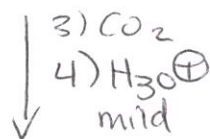 3) CO₂
4) H₃O⊕
mild